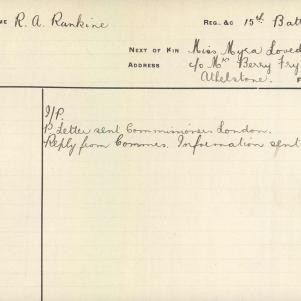 ME R. A. Rankine REG. &C 15th Batt
NEXT OF KIN Miss Myra Loved
ADDRESS c/o Mrs Berry Fry
Athelstone. F
I/P.
P Letter sent Commissioner London.
Reply from Commrs. Information sent